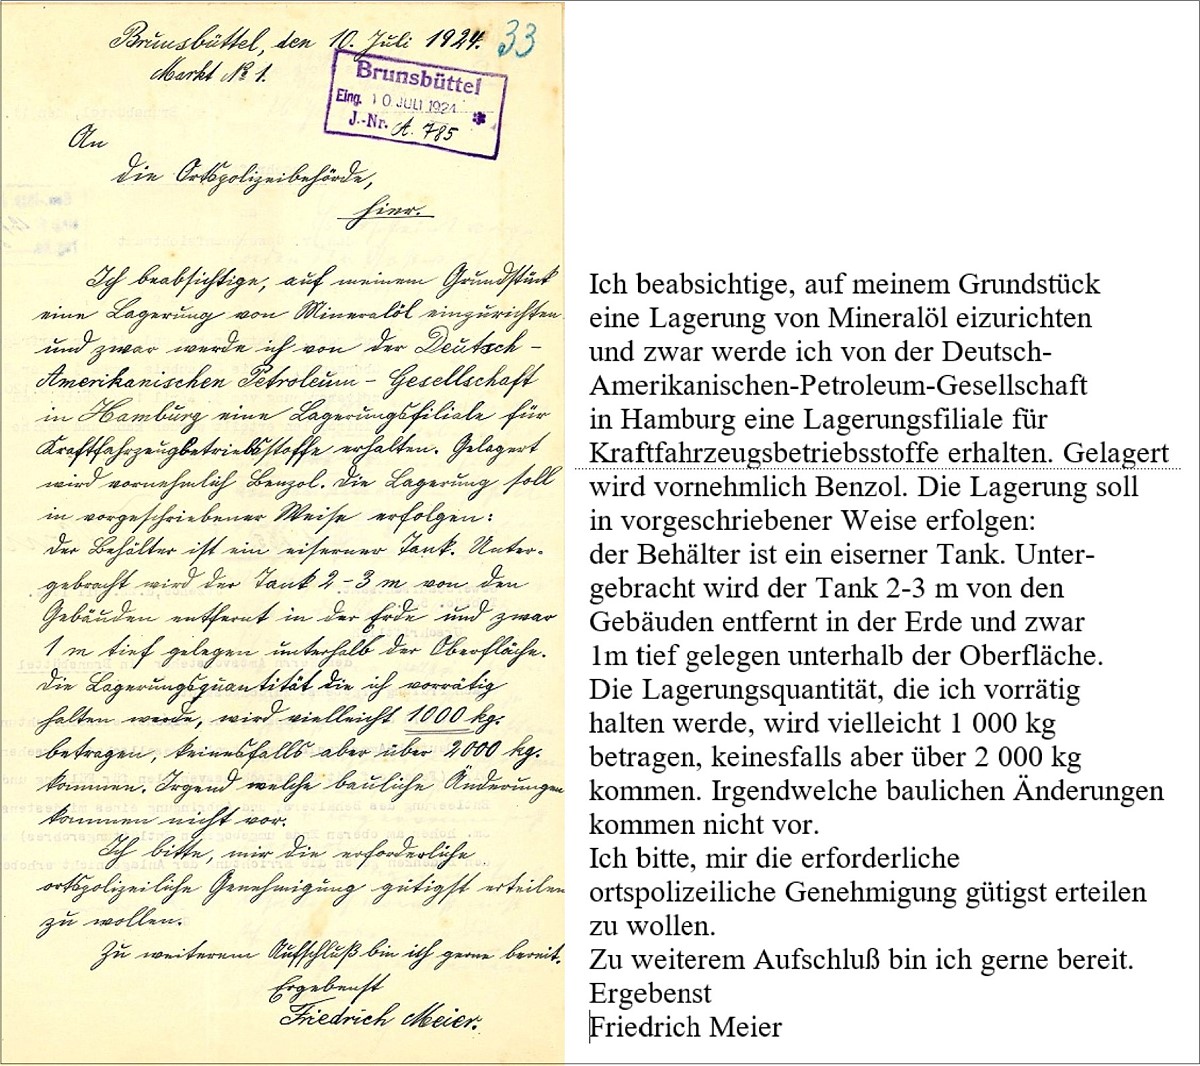 Brunsbüttel, den 10. Juli 1924.
33
Markt № 1.
Brunsbüttel
Eing. 10 JULI 1924
J.-Nr. A. 785
An
die Ortspolizeibehörde,
hier.
Ich beabsichtige, auf meinem Grundstück
eine Lagerung von Mineralöl einzurichten
und zwar werde ich von der Deutsch-
Amerikanischen Petroleum-Gesellschaft
in Hamburg eine Lagerungsfiliale für
Kraftfahrzeugbetriebsstoffe erhalten. Gelagert
wird vornehmlich Benzol. Die Lagerung soll
in vorgeschriebener Weise erfolgen:
der Behälter ist ein eiserner Tank. Unter-
gebracht wird der Tank 2-3 m von den
Gebäuden entfernt in der Erde und zwar
1 m tief gelegen unterhalb der Oberfläche.
Die Lagerungsquantität die ich vorrätig
halten werde, wird vielleicht 1000 kg.
betragen, keinesfalls aber über 2000 kg.
kommen. Irgend welche bauliche Änderungen
kommen nicht vor.
Ich bitte, mir die erforderliche
ortspolizeiliche Genehmigung gütigst erteilen
zu wollen.
Zu weiterem Aufschluß bin ich gerne bereit.
Ergebenst
Friedrich Meier.
Ich beabsichtige, auf meinem Grundstück
eine Lagerung von Mineralöl eizurichten
und zwar werde ich von der Deutsch-
Amerikanischen-Petroleum-Gesellschaft
in Hamburg eine Lagerungsfiliale für
Kraftfahrzeugsbetriebsstoffe erhalten. Gelagert
wird vornehmlich Benzol. Die Lagerung soll
in vorgeschriebener Weise erfolgen:
der Behälter ist ein eiserner Tank. Unter-
gebracht wird der Tank 2-3 m von den
Gebäuden entfernt in der Erde und zwar
1m tief gelegen unterhalb der Oberfläche.
Die Lagerungsquantität, die ich vorrätig
halten werde, wird vielleicht 1 000 kg
betragen, keinesfalls aber über 2 000 kg
kommen. Irgendwelche baulichen Änderungen
kommen nicht vor.
Ich bitte, mir die erforderliche
ortspolizeiliche Genehmigung gütigst erteilen
zu wollen.
Zu weiterem Aufschluß bin ich gerne bereit.
Ergebenst
Friedrich Meier